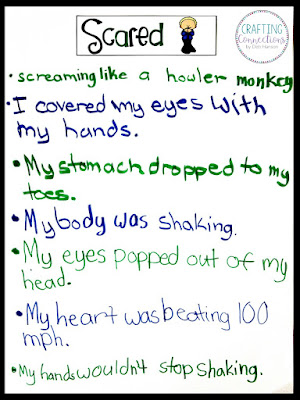 Scared
CRAFTING
Connections
by Deb Hanson
• screaming like a howler monkey
• I covered my eyes with
my hands.
• My stomach dropped to my
toes.
• My body was shaking.
• My eyes popped out of my
head.
• My heart was beating 100
mph.
• My hands wouldn't stop shaking.